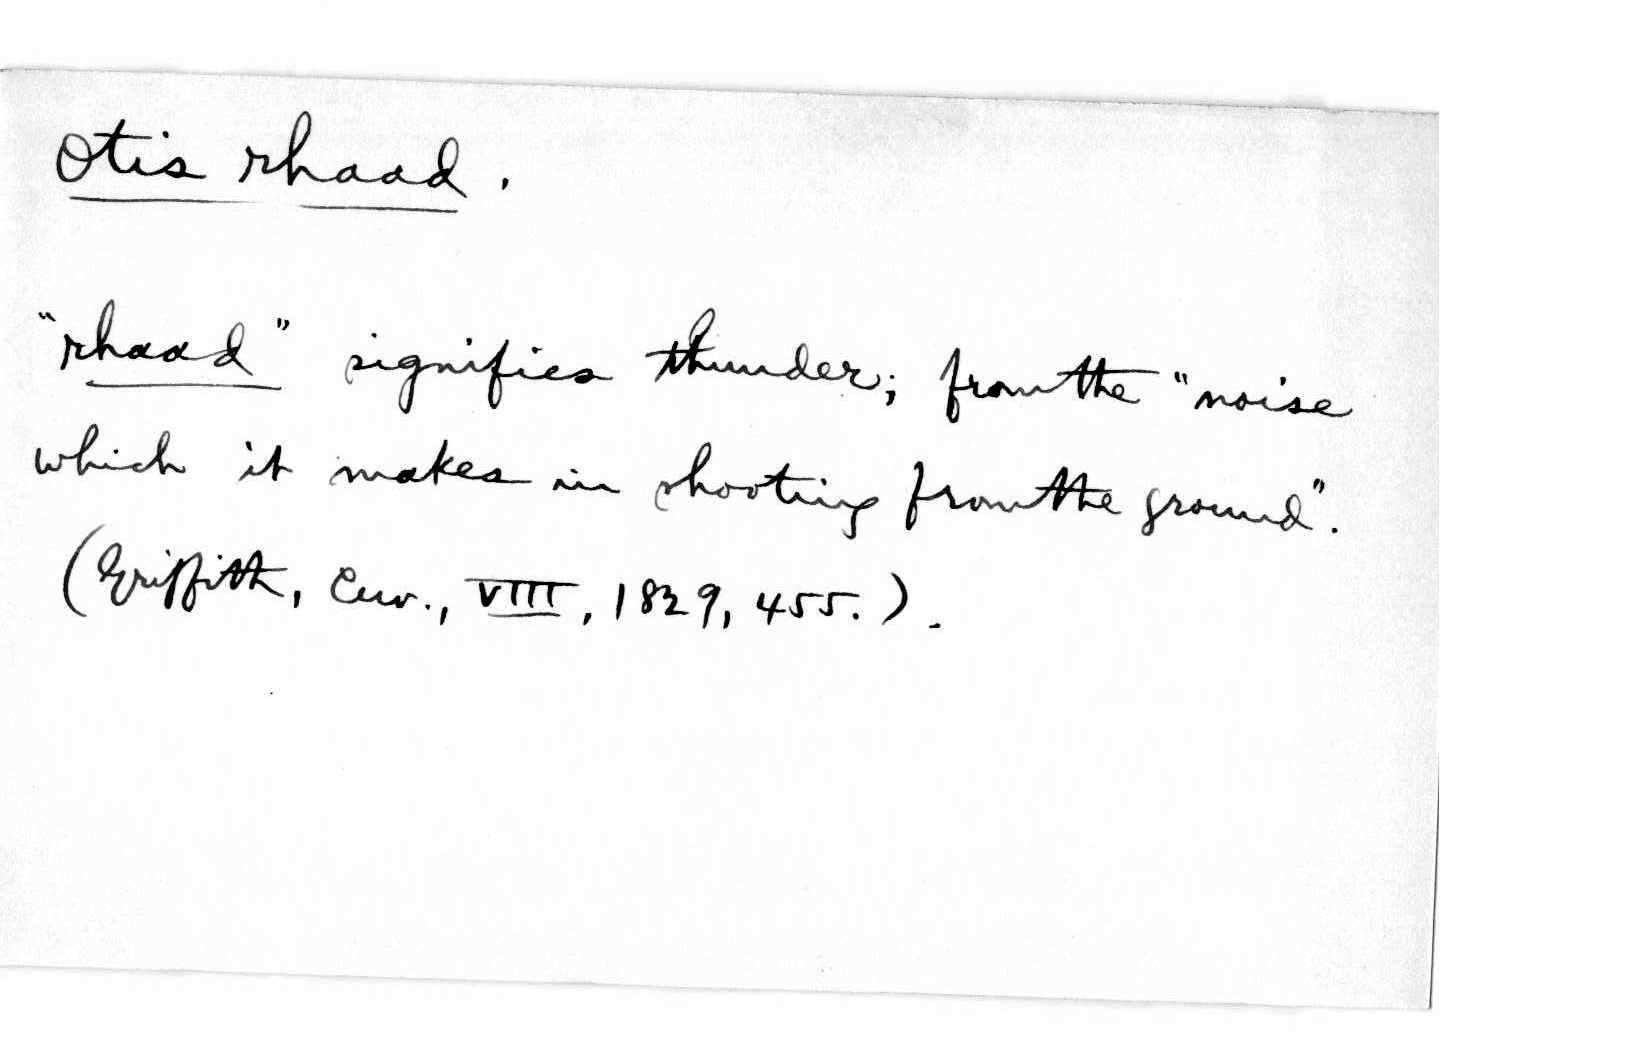 Otis rhaad.
"rhaad" signifies thunder; from the "noise
which it makes in shooting from the ground".
(Griffith, Cuv., VIII, 1829, 455.).